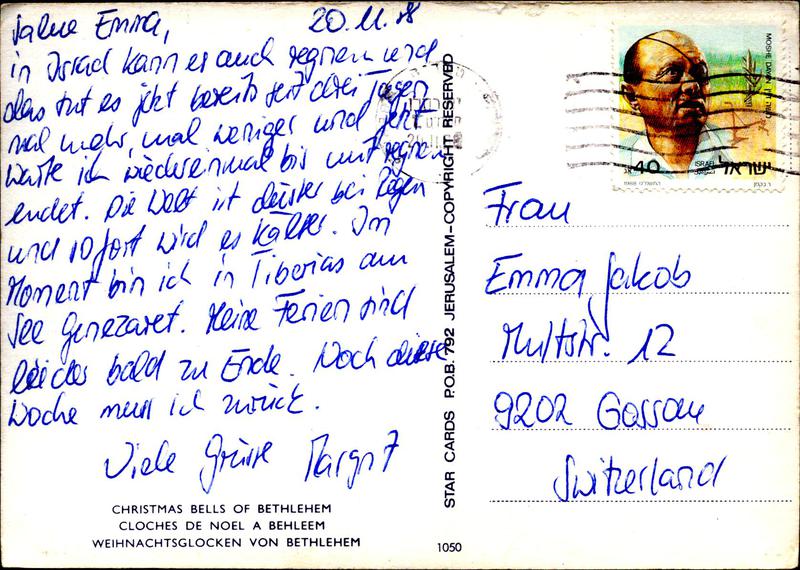 20.11.88
Salue Emma,
in Israel kann es auch regnen und
das tut es jetzt bereits seit drei Tagen
mal mehr, mal weniger und jetzt
warte ich wiedereinmal bis mit regnen
endet. Die Welt ist düster bei Regen
und sofort wird es kälter. Im
Moment bin ich in Tiberias am
See Genezaret. Meine Ferien sind
leider bald zu Ende. Noch diese
Woche muss ich zurück.
Viele Grüsse Margrit
CHRISTMAS BELLS OF BETHLEHEM
CLOCHES DE NOEL A BEHLEEM
WEIHNACHTSGLOCKEN VON BETHLEHEM
1050
STAR CARDS P.O.B. 792 JERUSALEM–COPYRIGHT RESERVED
MOSHE DAYAN משה דיין
40
ISRAEL ישראל
1988
Frau
Emma Jakob
12
9202 Gossau
Switzerland